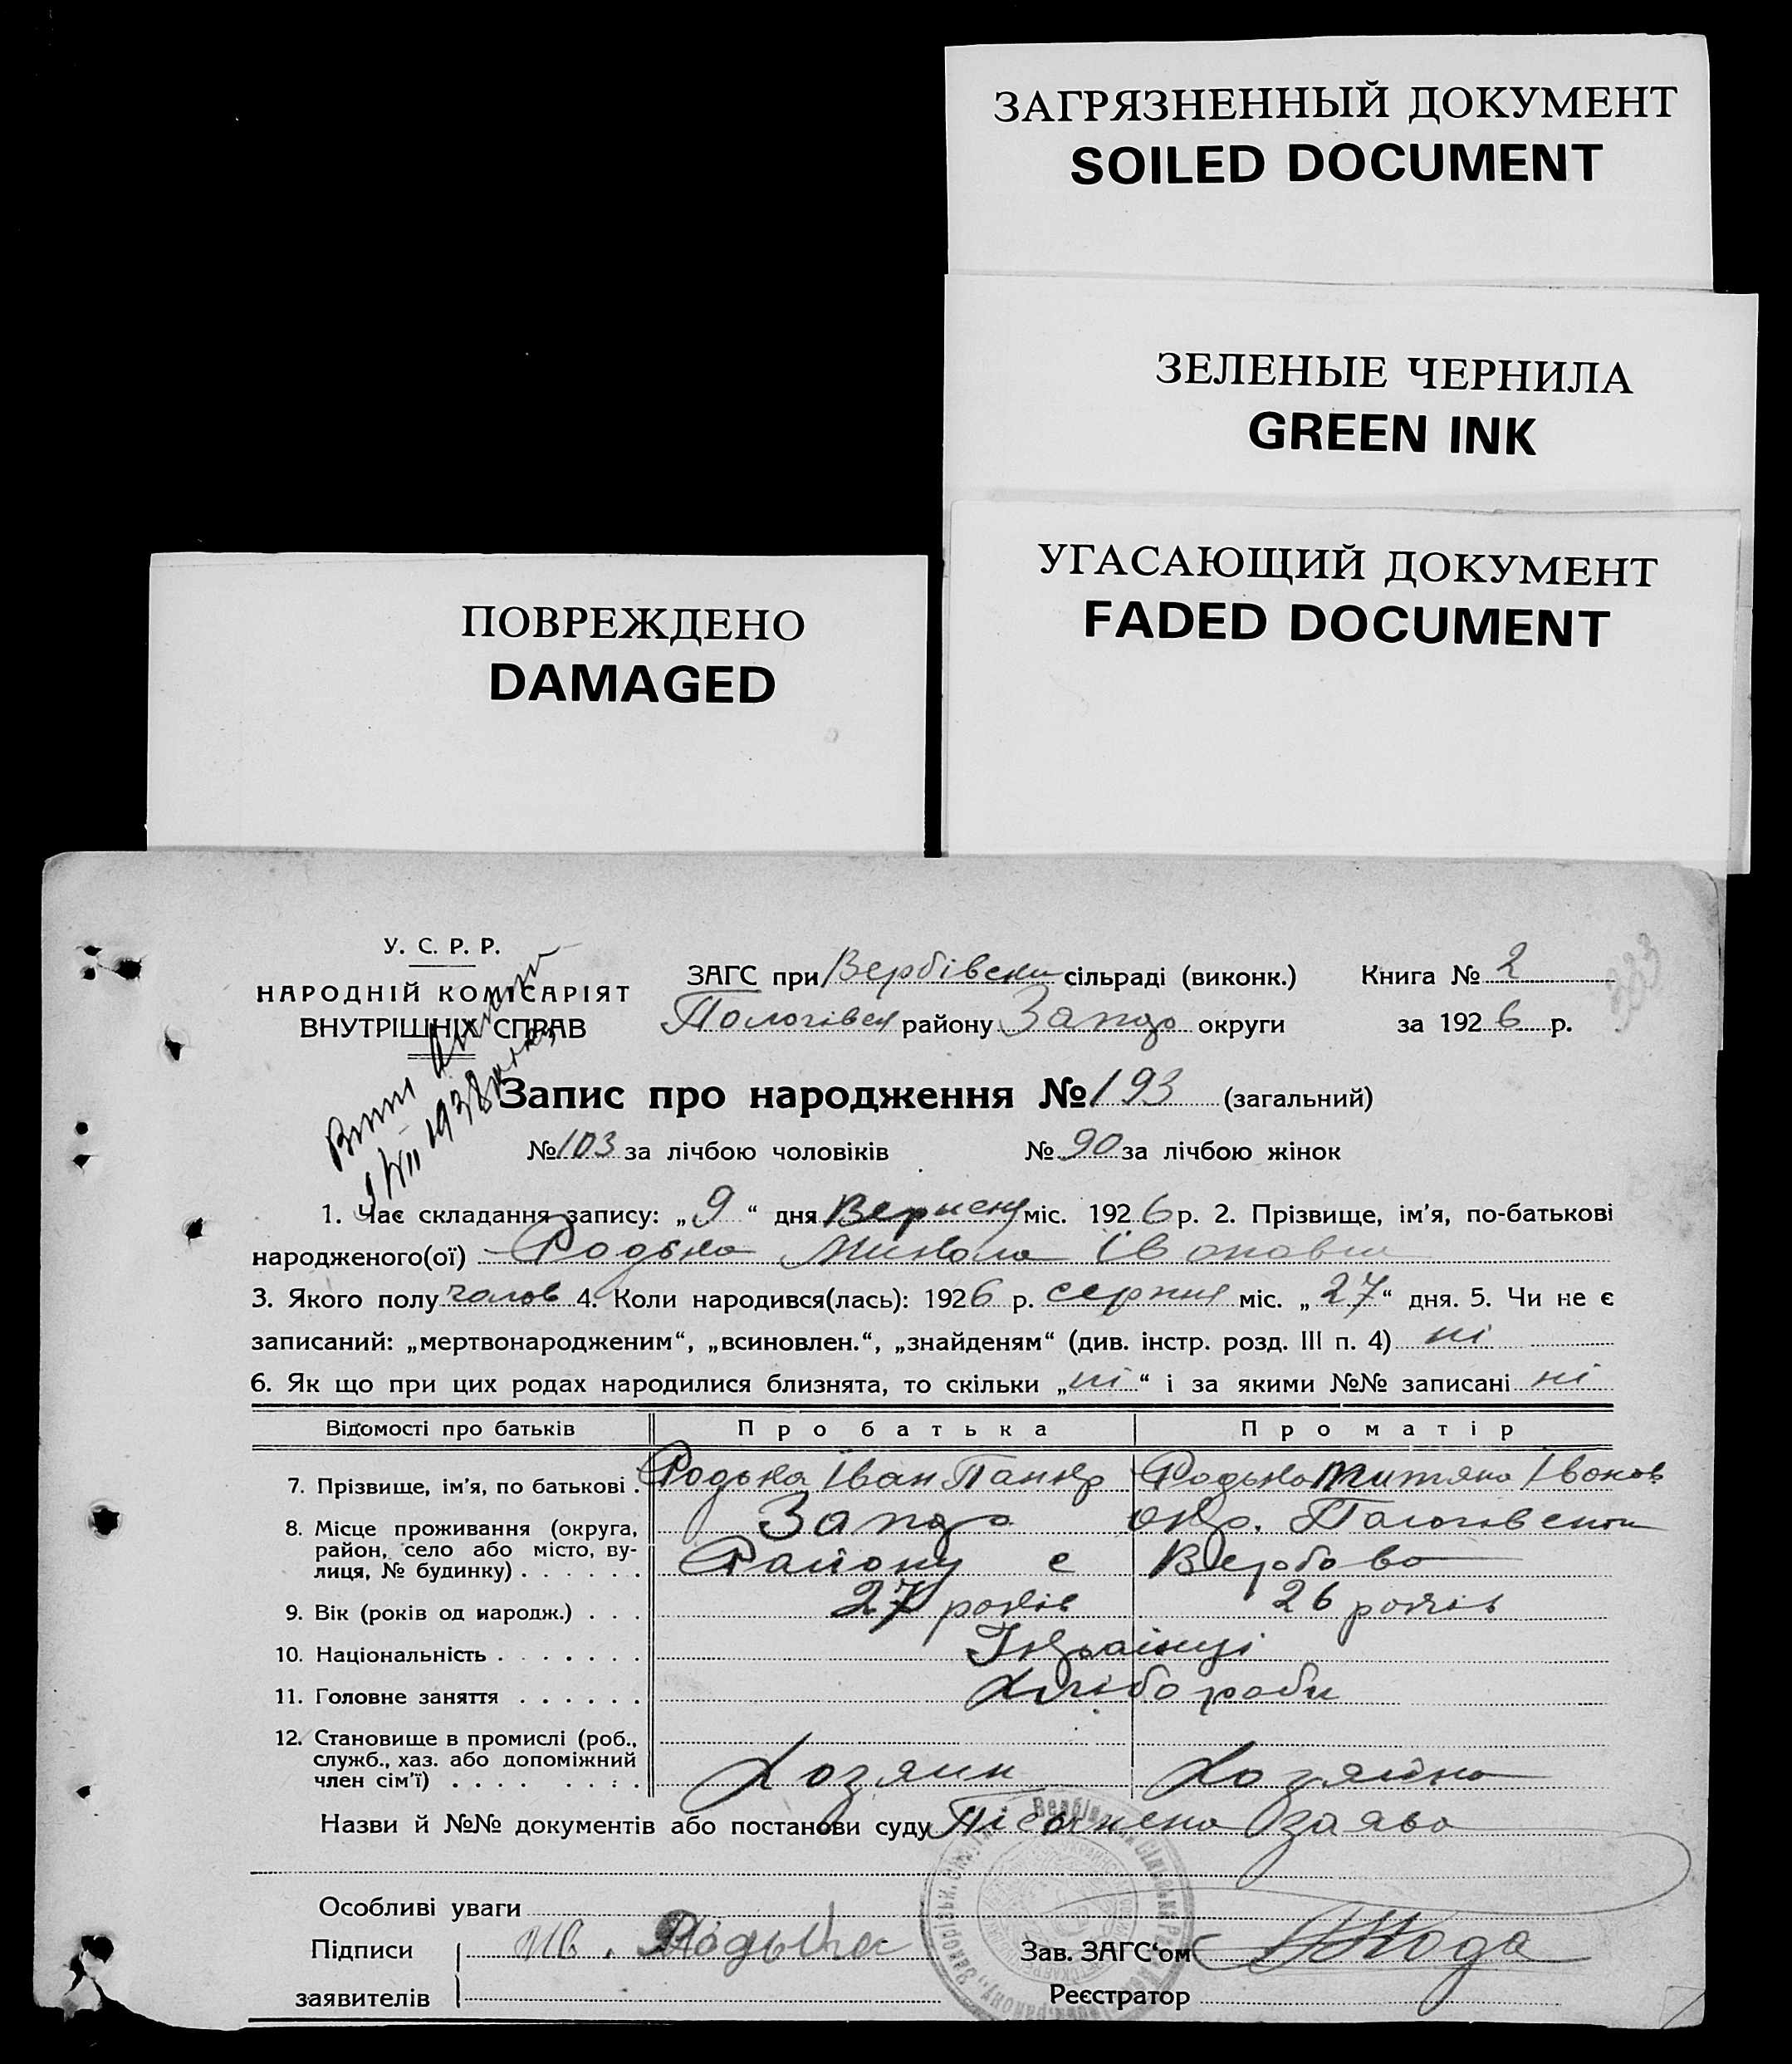 ЗАГРЯЗНЕННЫЙ ДОКУМЕНТ
SOILED DOCUMENT
ЗЕЛЕНЫЕ ЧЕРНИЛА
GREEN INK
УГАСАЮЩИЙ ДОКУМЕНТ
FADED DOCUMENT
ПОВРЕЖДЕНО
DAMAGED
У. С. Р. Р.
НАРОДНІЙ КОМІСАРІЯТ
ВНУТРІШНІХ СПРАВ
ЗАГС при Вербівськи сільраді (виконк.) Книга № 2
Пологівськ району Запор округи за 1926 р.
1938
Запис про народження № 193 (загальний)
№ 103 за лічбою чоловіків № 90 за лічбою жінок
1. Час складання запису: „9“ дня Вересня міс. 1926 р. 2. Прізвище, ім'я, по-батькові
народженого(ої) Родька Микола Івонович
3. Якого полу чолов 4. Коли народився(лась): 1926 р. серпня міс. „27“ дня. 5. Чи не є
записаний: „мертвонародженим“, „всиновлен.“, „знайденям“ (див. інстр. розд. III п. 4) ні
6. Як що при цих родах народилися близнята, то скільки „ні“ і за якими №№ записані ні
Відомості про батьків Про батька Про матір
7. Прізвище, ім'я, по батькові . Родька Іван Панкр Родька Титяна Івонов
8. Місце проживання (округа, район, село або місто, вулиця, № будинку) . . . . . . Запор окр. Пологівськи
Району с Вербово
9. Вік (років од народж.) . . . 27 років 26 років
10. Національність . . . . . . . Українці
11. Головне заняття . . . . . . Хлібороби
12. Становище в промислі (роб., служб., хаз. або допоміжний член сім'ї) . . . . Хозяин Хозяйка
Назви й №№ документів або постанови суду Пісьмена заява
Особливі уваги
Підписи Ив. Родька Зав. ЗАГС'ом
заявителів Реєстратор